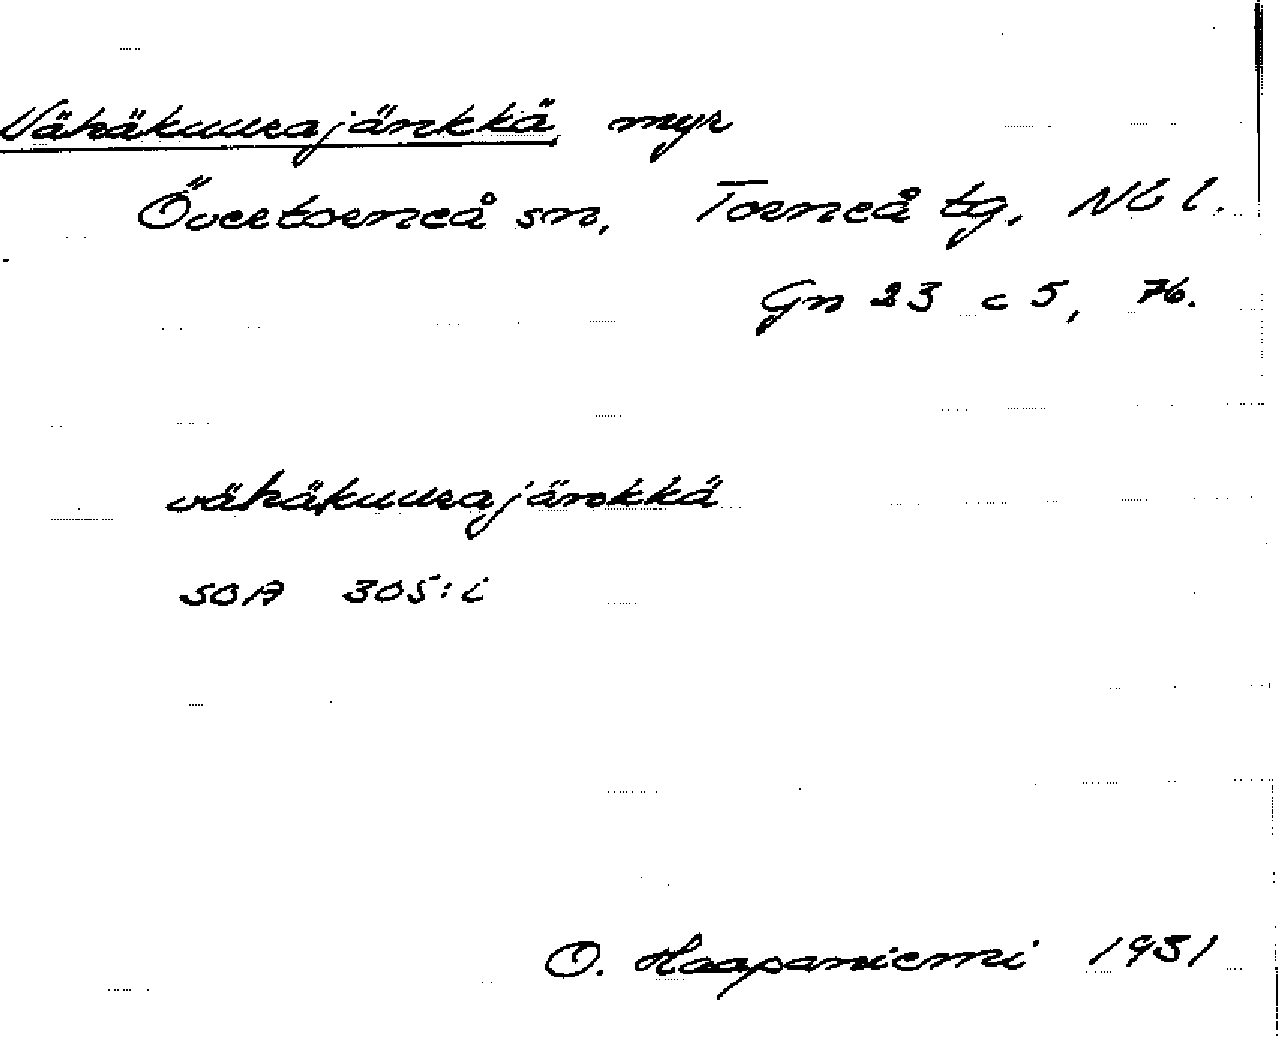 Vähäkuurajänkkä myr
Övertorneå sn, Torneå tg, Nb l.
Gn 23 c 5, 76.
vähäkuurajänkkä
SOA 305:i
O. Haapaniemi 1931